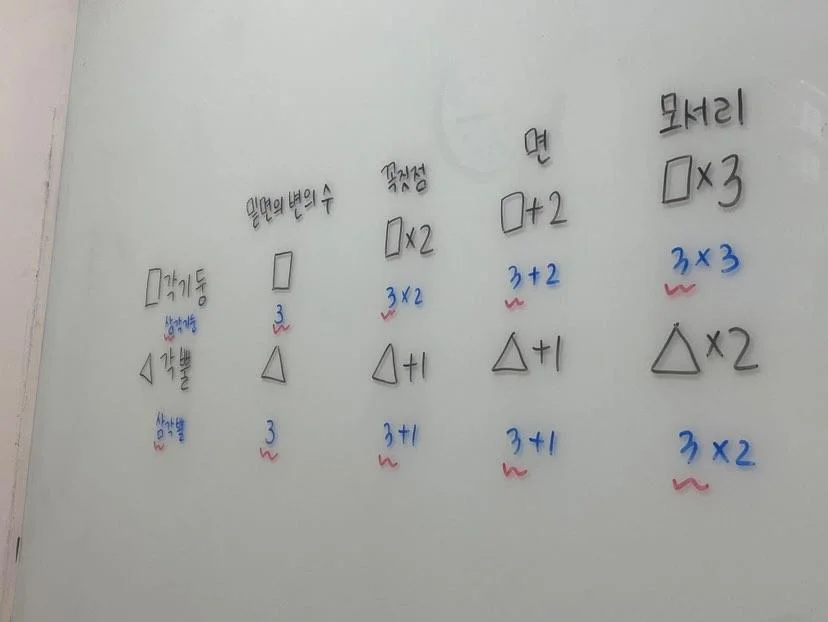 밑면의 변의 수 꼭짓점 면 모서리
□각기둥 □ □×2 □+2 □×3
삼각기둥 3 3×2 3+2 3×3
△각뿔 △ △+1 △+1 △×2
삼각뿔 3 3+1 3+1 3×2